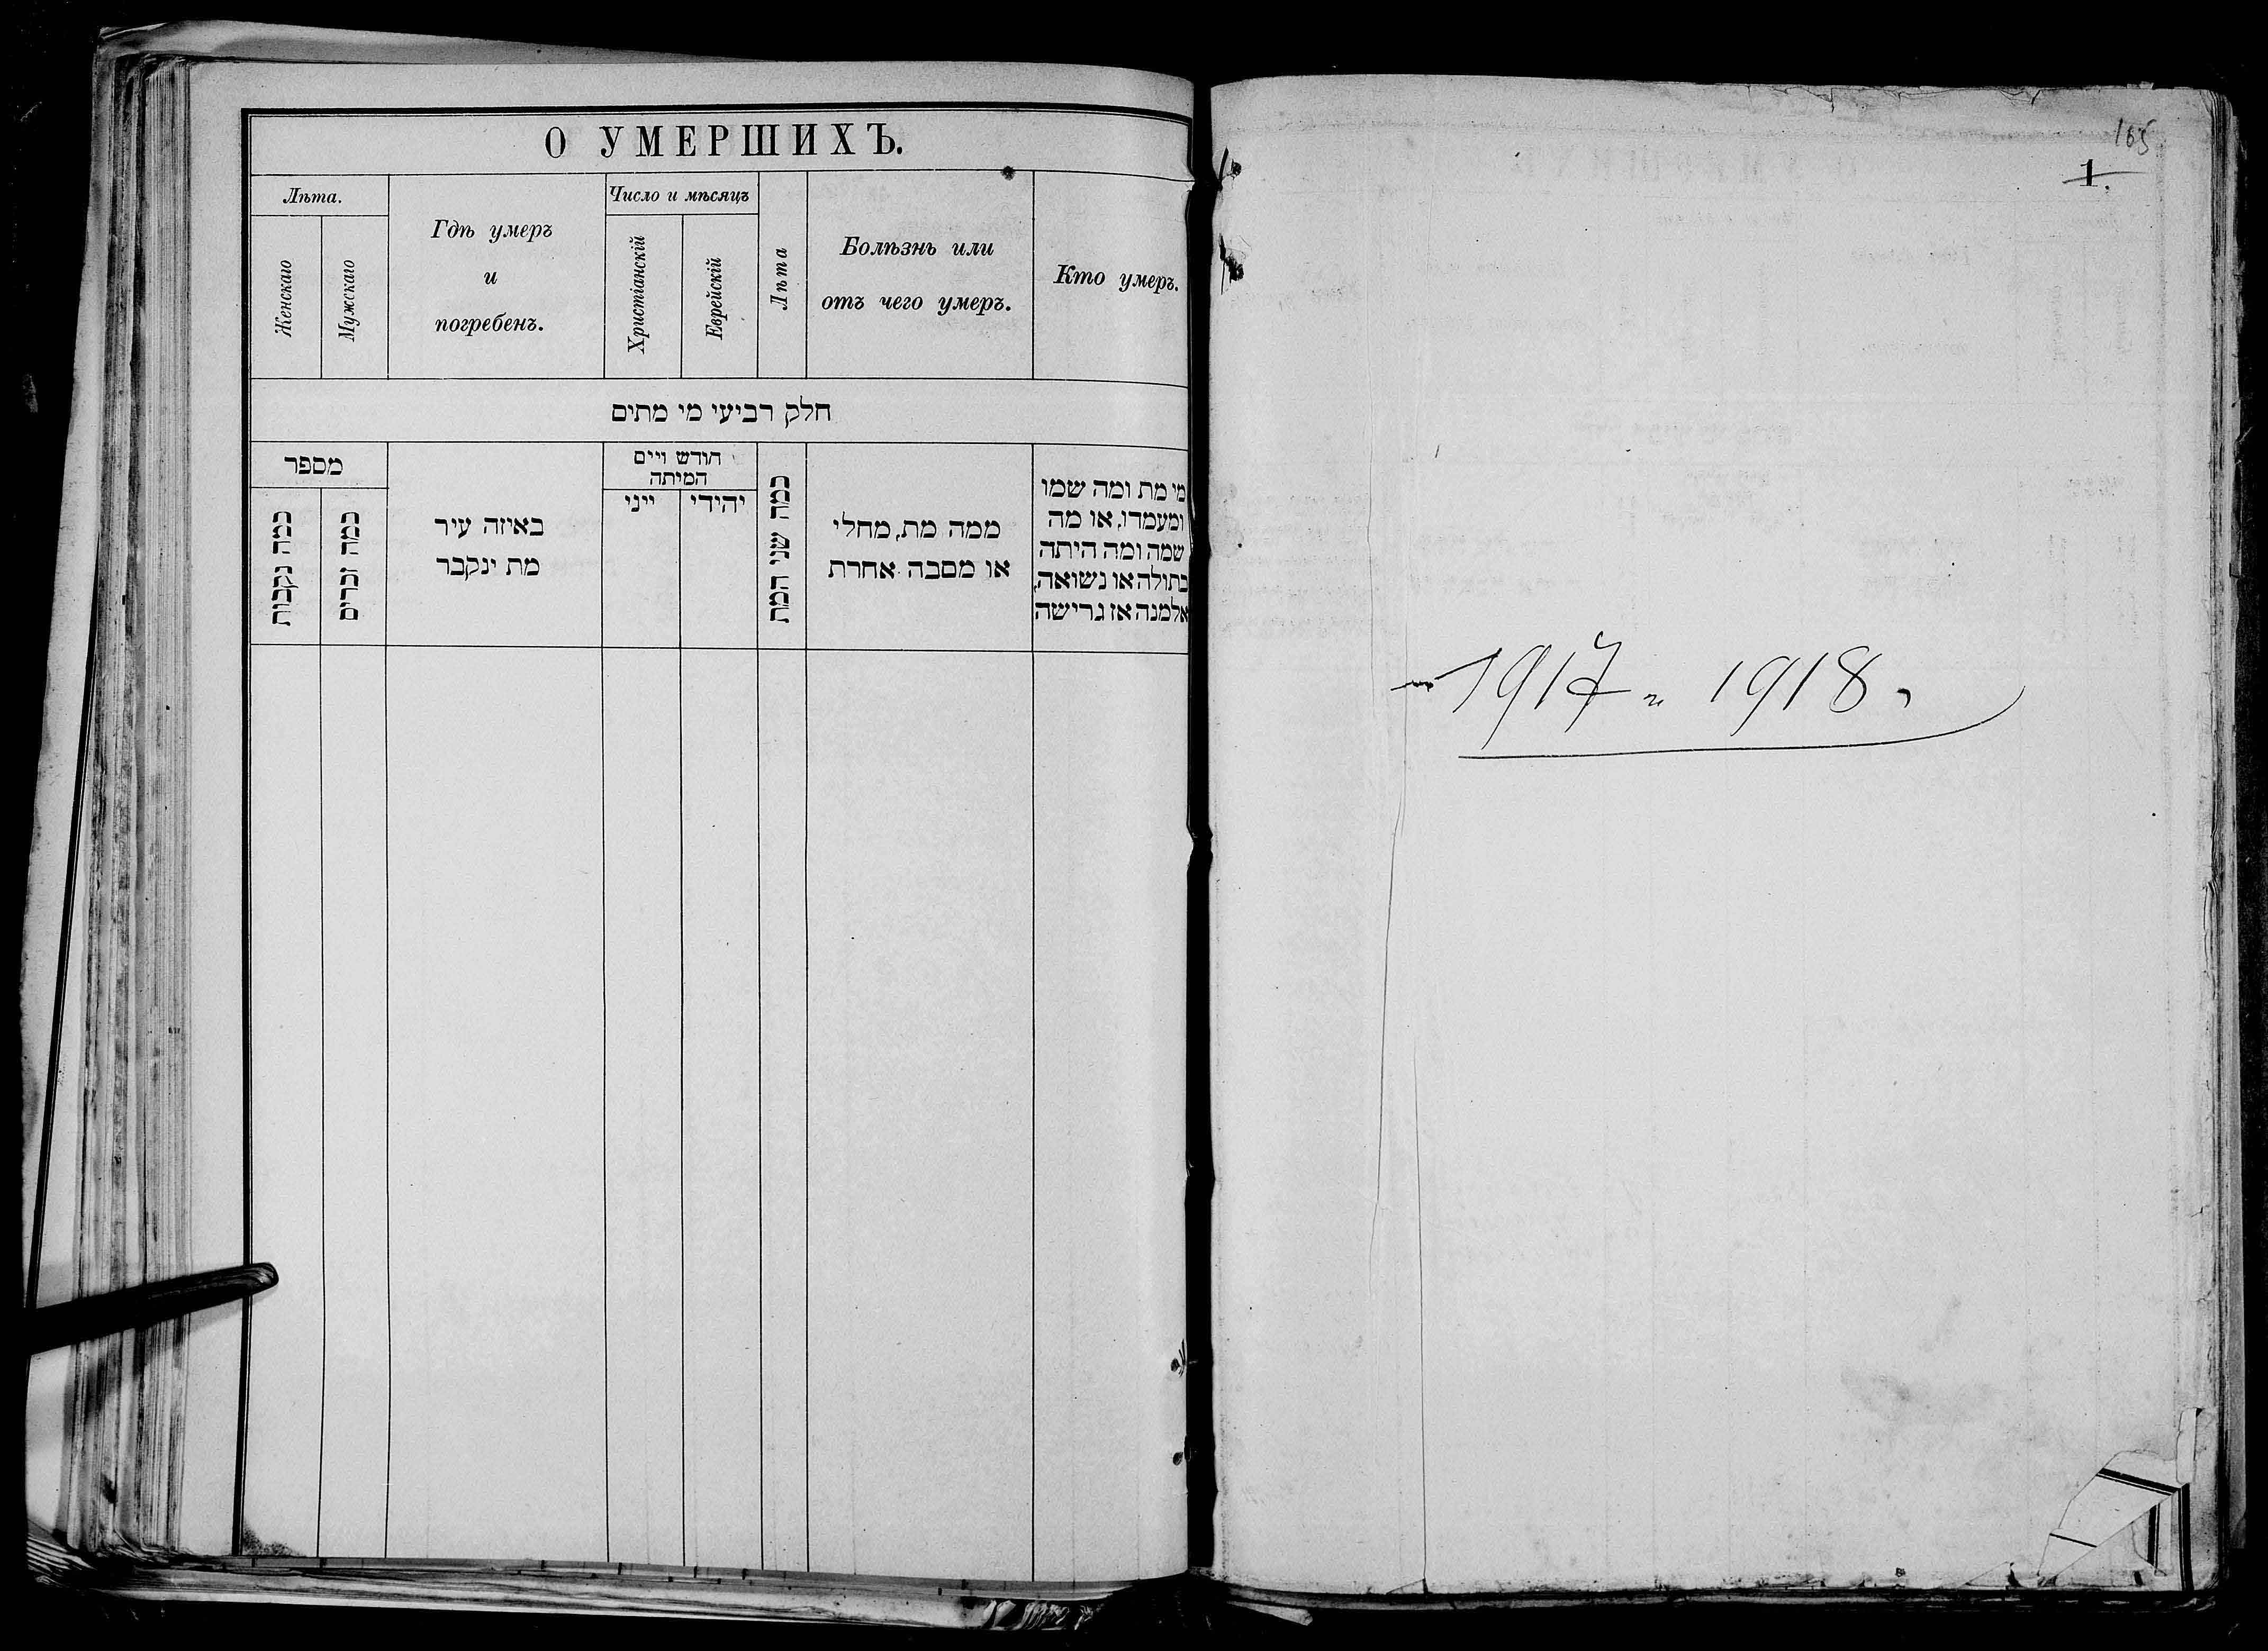 О УМЕРШИХЪ.
Лѣта.
Женскаго
Мужскаго
Гдѣ умеръ
и
погребенъ.
Число и мѣсяцъ
Христіанскій
Еврейскій
Лѣта
Болѣзнь или
отъ чего умеръ.
Кто умеръ.
חלק רביעי מי מתים
מי מת ומה שמו
ומעמדו, או מה
שמה ומה היתה
בתולה או נשואה,
אלמנה אז גרישה
ממה מת, מחלי
או מסבה אחרת
כמה שני המת
חודש ויים
המיתה
יהידי
ייני
באוזה עיר
מת ינקבר
מספר
כמה זכרים
כמה נקבות
165
1.
1917 и 1918